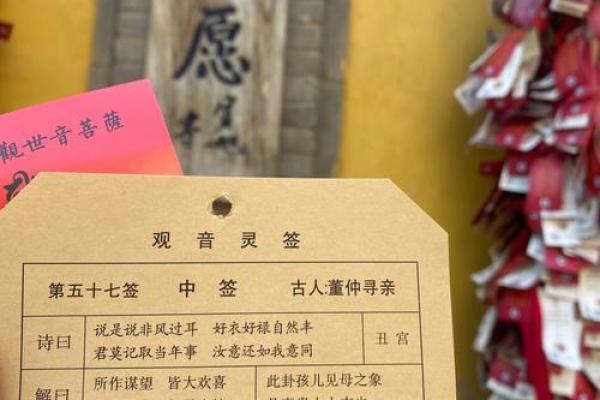 愿
觀世音菩薩
观音灵签
第五十七签 中签 古人:董仲寻亲
诗曰
说是说非风过耳 好衣好禄自然丰
君莫记取当年事 汝意还如我意同
丑宫
解曰
所作谋望 皆大欢喜
此卦孩儿见母之象